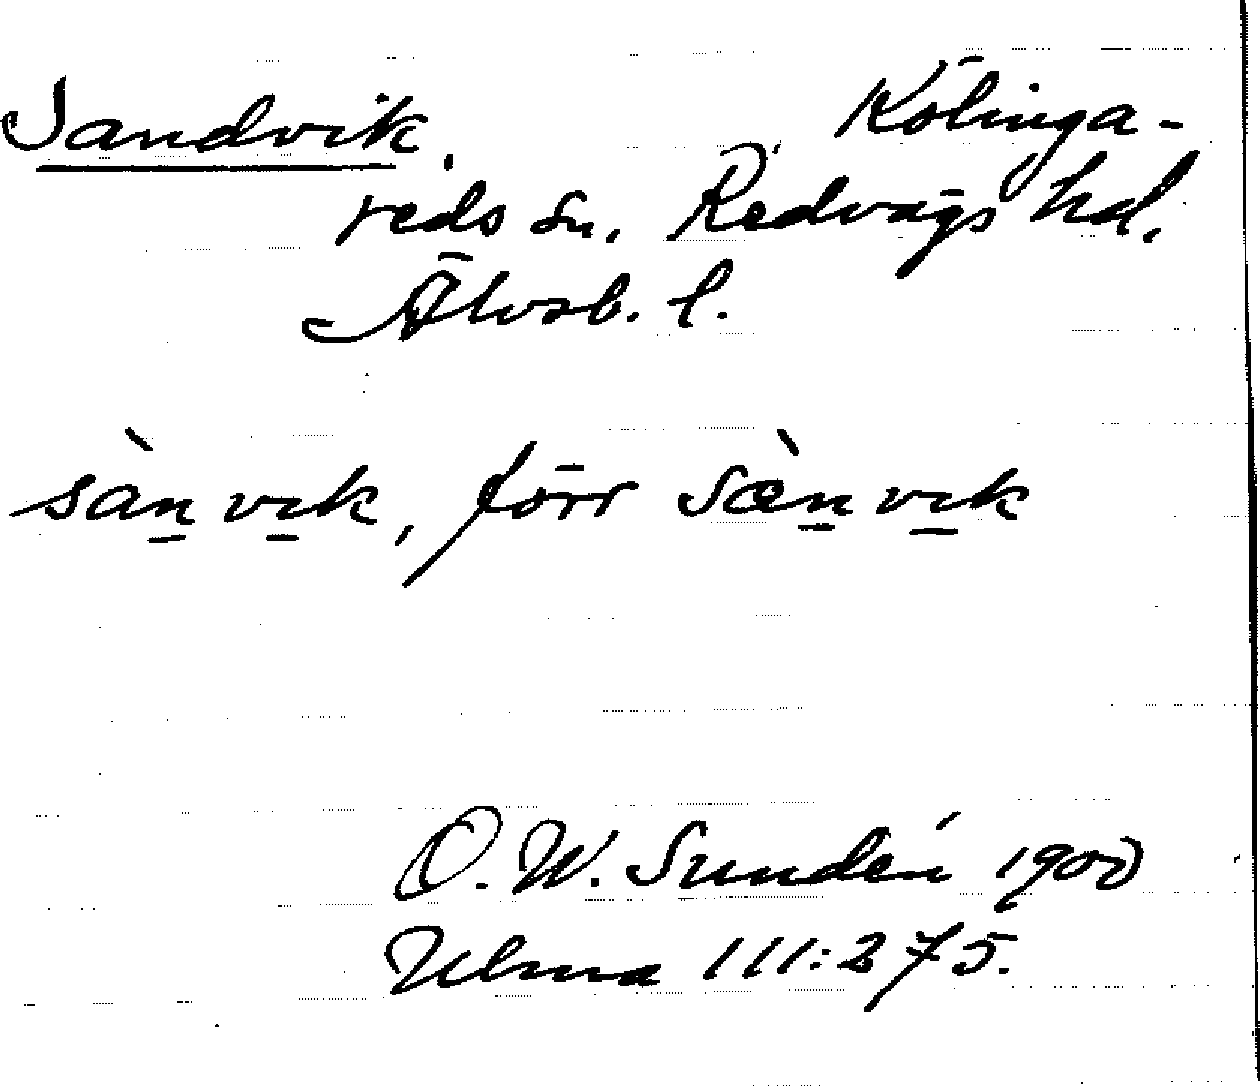 Sandvik. Kölinga-
reds sn. Redvägs hd.
Älvsb. l.
sàn vik, förr sæ̀n vik
O. W. Sundén 1900
Ulma 111:275.